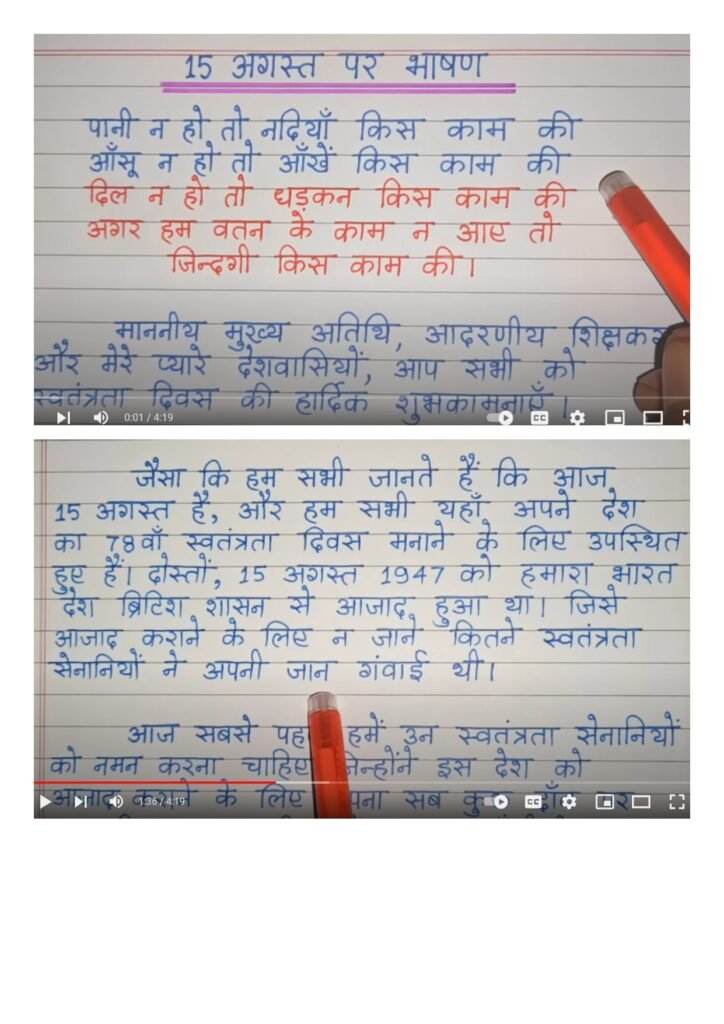 15 अगस्त पर भाषण
पानी न हो तो नदियाँ किस काम की
आँसू न हो तो आँखें किस काम की
दिल न हो तो धड़कन किस काम की
अगर हम वतन के काम न आए तो
जिन्दगी किस काम की।
माननीय मुख्य अतिथि, आदरणीय
और मेरे प्यारे देशवासियों, आप सभी को
स्वतंत्रता दिवस की हार्दिक शुभकामनाएँ।
0:01 / 4:19
CC
जैसा कि हम सभी जानते हैं कि आज
15 अगस्त है, और हम सभी यहाँ अपने देश
का 78वाँ स्वतंत्रता दिवस मनाने के लिए उपस्थित
हुए हैं। दोस्तों, 15 अगस्त 1947 को हमारा भारत
देश ब्रिटिश शासन से आजाद हुआ था। जिसे
आजाद कराने के लिए न जाने कितने स्वतंत्रता
सेनानियों ने अपनी जान गंवाई थी।
आज सबसे हमें उन स्वतंत्रता सेनानियों
को नमन करना चाहिए जिन्होंने इस देश को
आजाद के लिए सब
1:36 / 4:19
CC